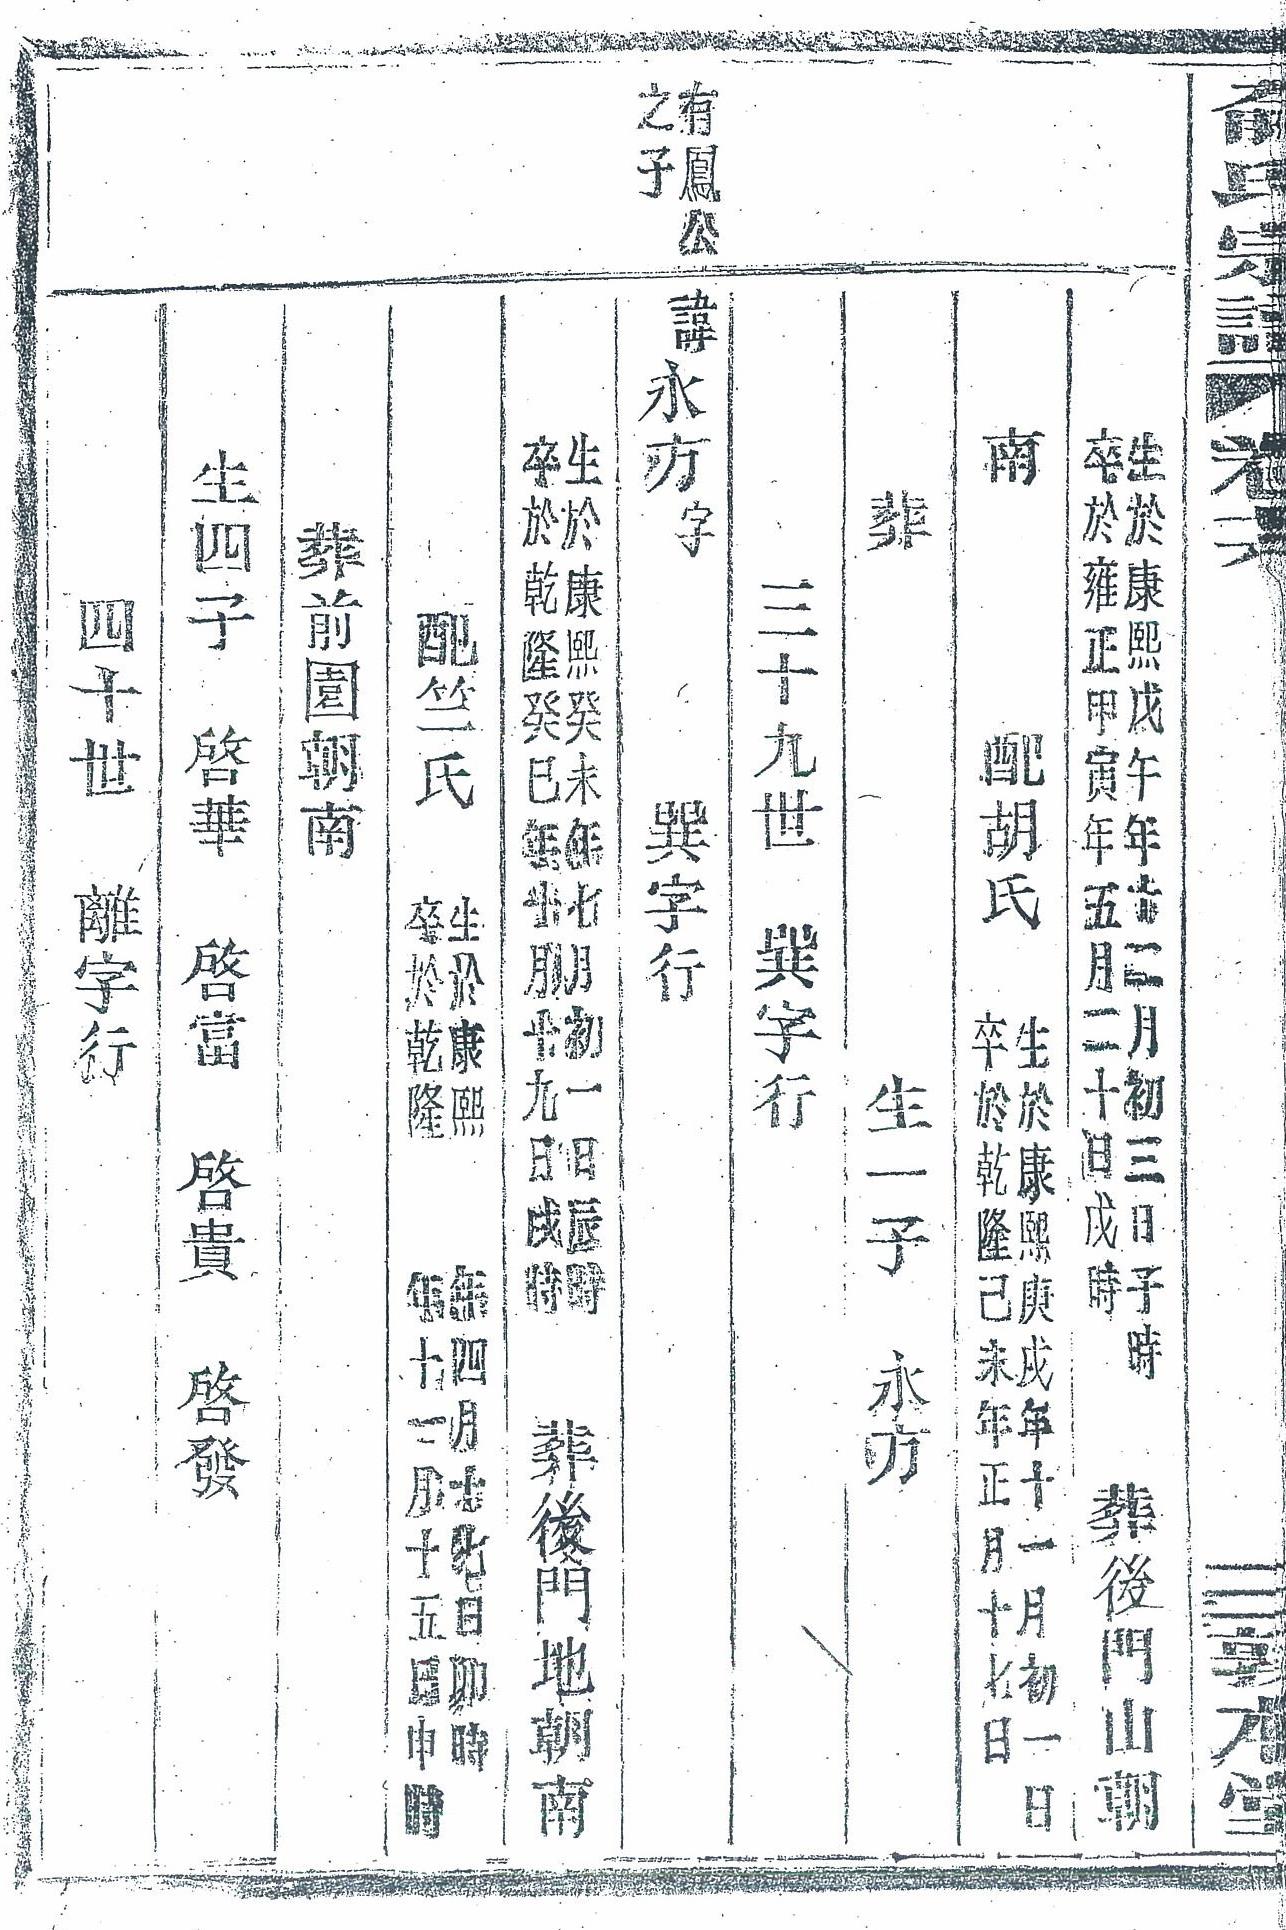 俞氏宗譜 卷六 三 敦本堂
生於康熙戊午年十二月初三日子時
卒於雍正甲寅年五月二十日戌時
葬後門山朝
南 配胡氏
生於康熙庚戌年十一月初一日
卒於乾隆己未年正月十七日
葬 生一子 永方
三十九世 巽字行
有鳳公
之子
諱永方字 巽字行
生於康熙癸未年七月初一日辰時
卒於乾隆癸巳年十月十九日戌時
葬後門地朝南
配竺氏
生於康熙 年四月十七日卯時
卒於乾隆 年十二月十五日申時
葬前園朝南
生四子 啓華 啓富 啓貴 啓發
四十世 離字行